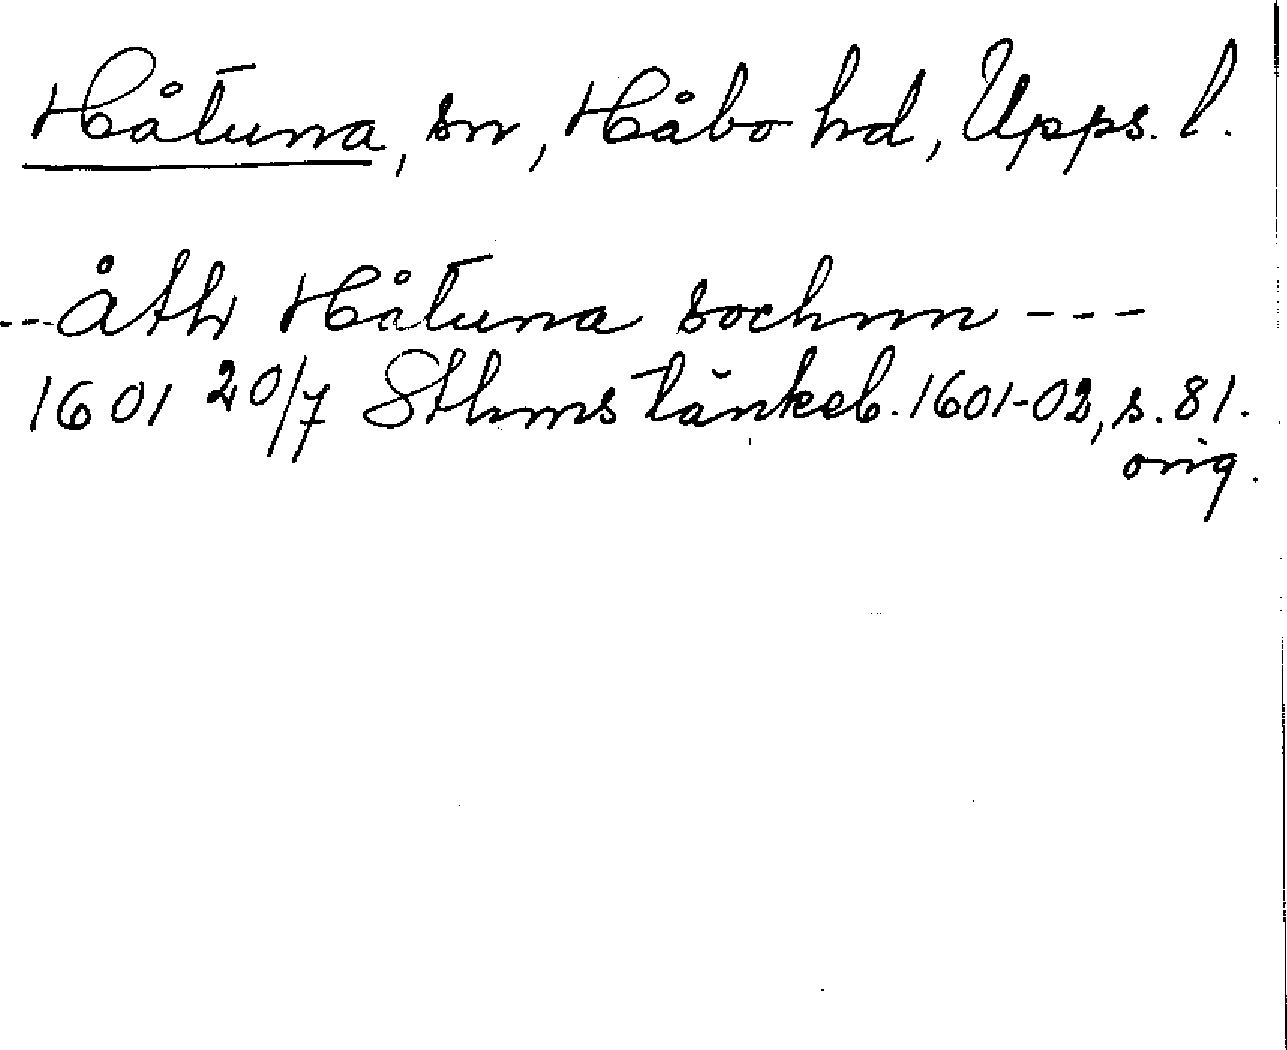 Håtuna, sn, Håbo hd, Upps. l.
--åth Håtuna sochnn ---
1601 20/7 Sthms tänkeb. 1601-02, s. 81.
orig.